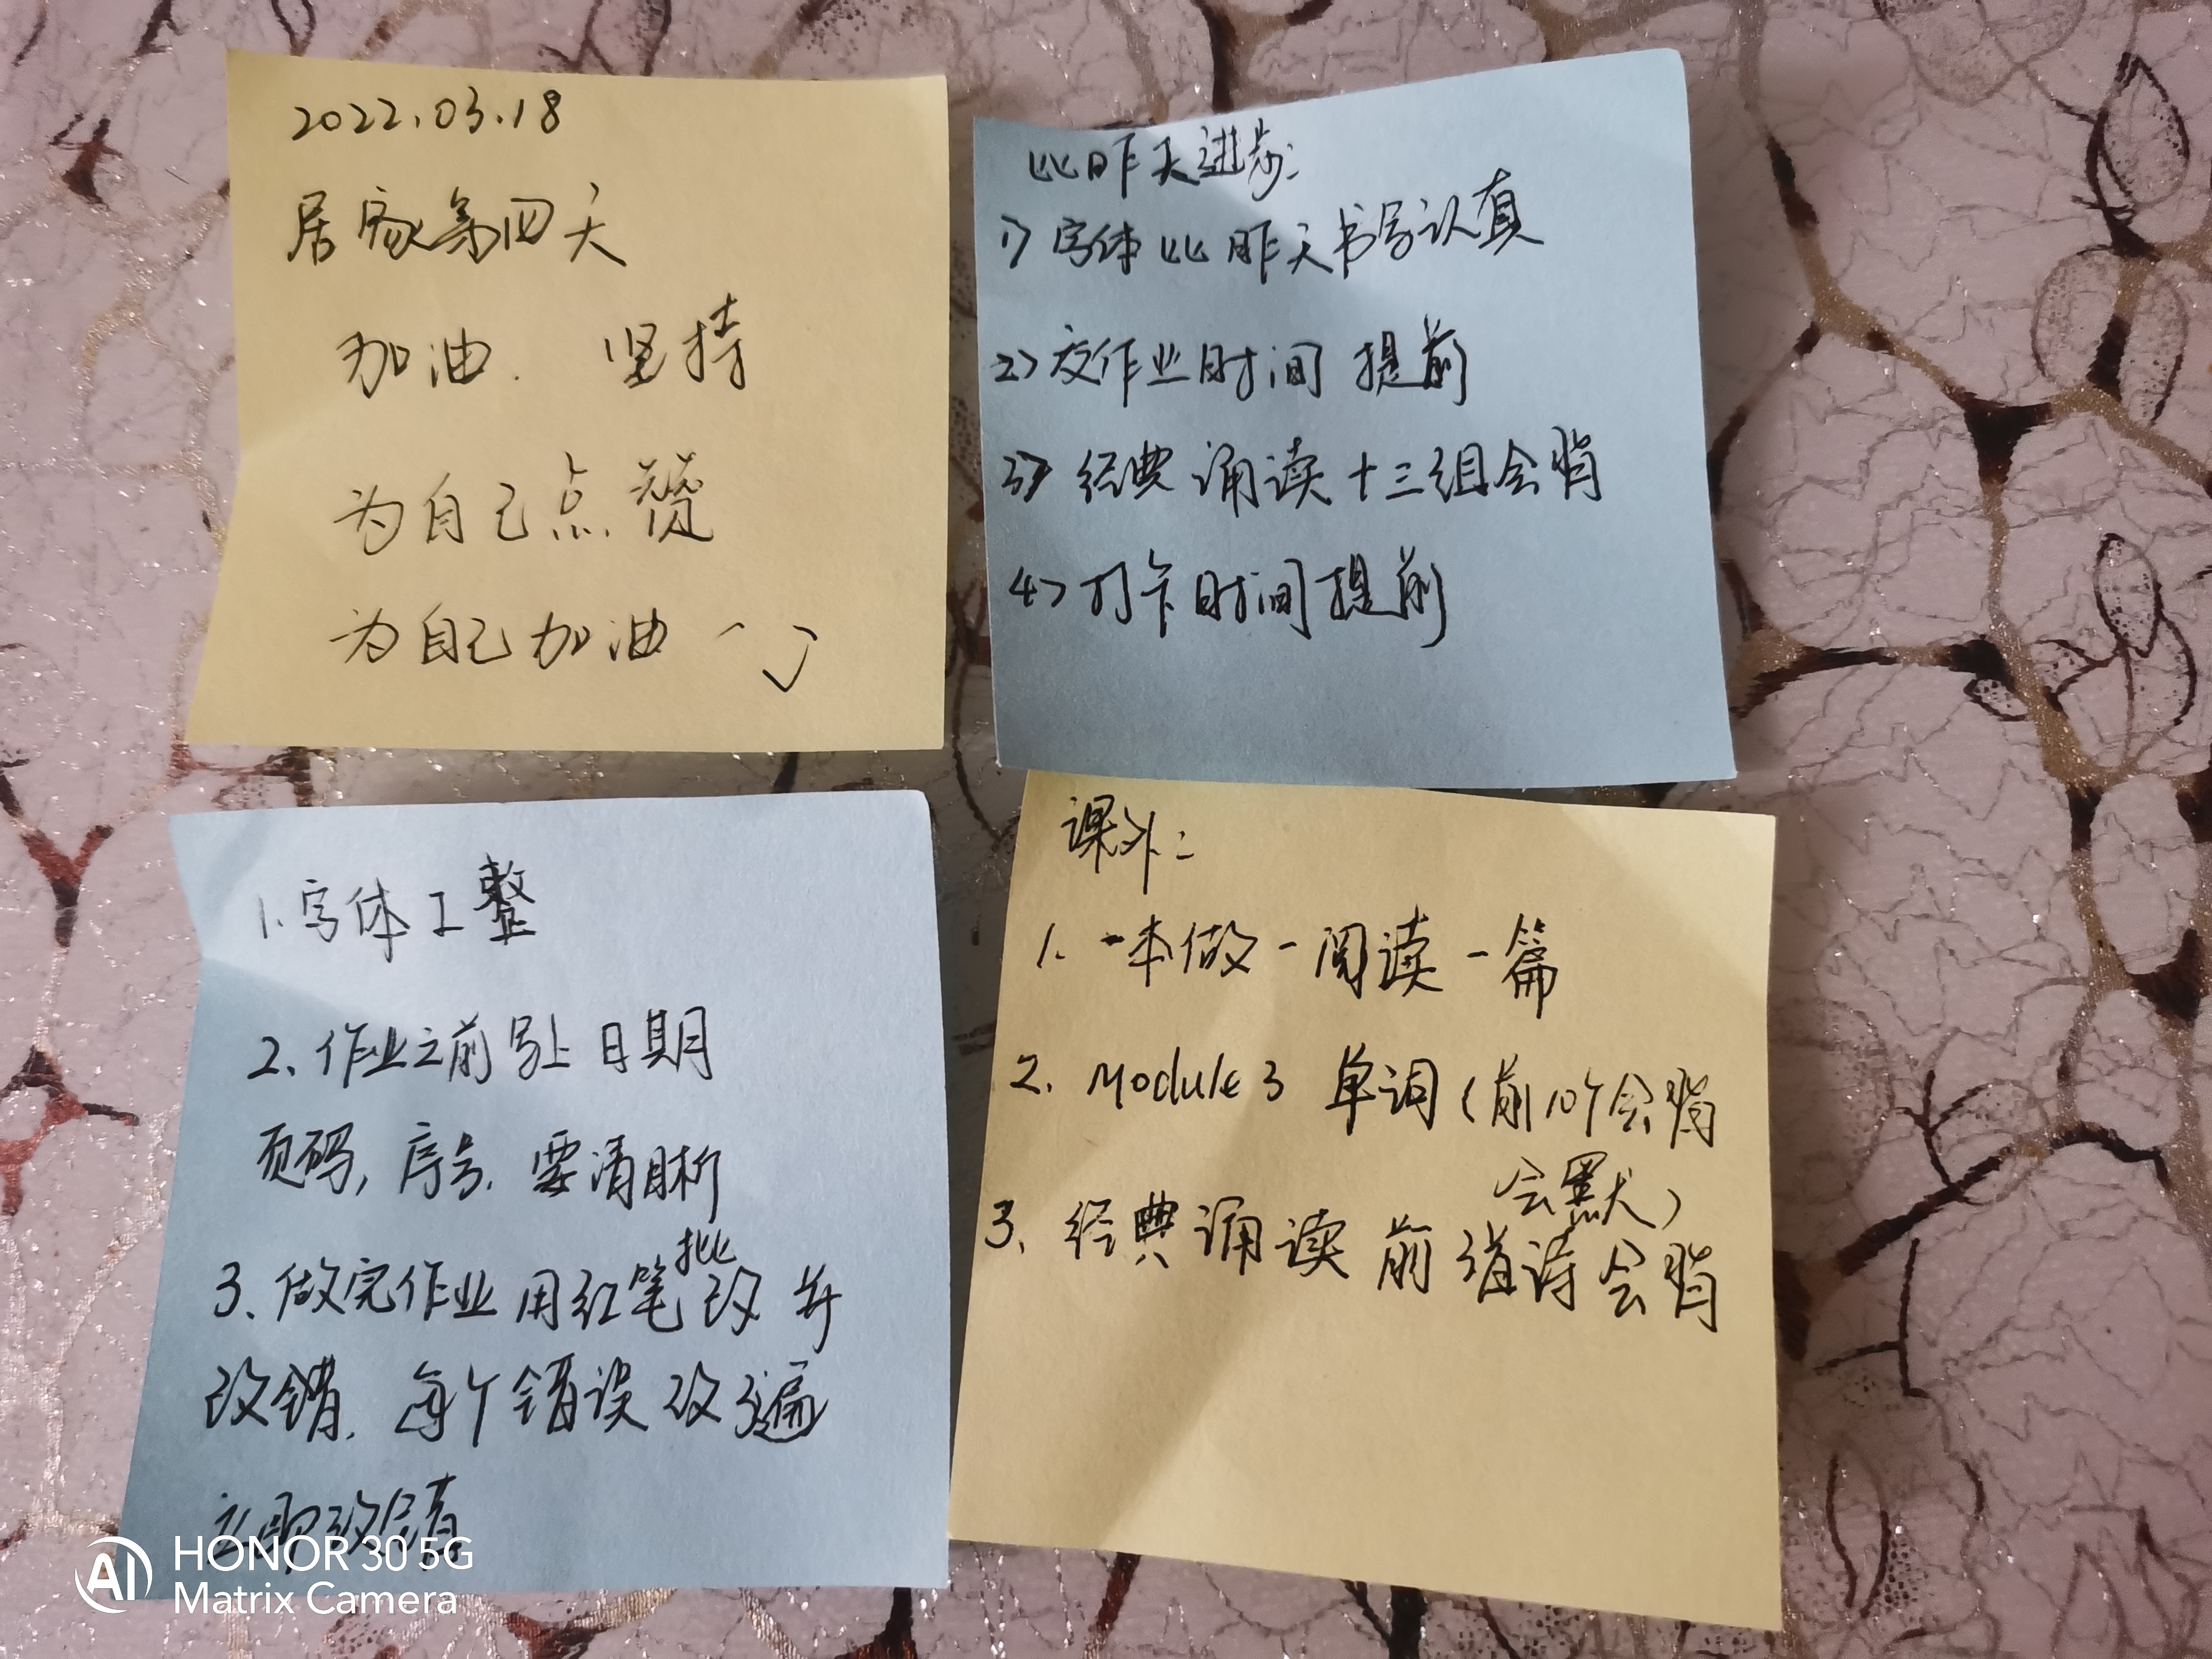 2022.03.18
居家第四天
加油. 坚持
为自己点赞
为自己加油
比昨天进步:
1) 字体比昨天书写认真
2) 交作业时间 提前
3) 经典诵读十三组会背
4) 打卡时间提前
1.字体工整
2、作业之前写上日期
页码,序号,要清晰
3、做完作业用红笔批改并
改错.每个错误改3遍
立即改错
课外:
1. 一本做一阅读一篇
2. Module 3 单词(前10个会背
会默)
3、经典诵读 前3首诗会背
HONOR 30 5G
Matrix Camera
AI